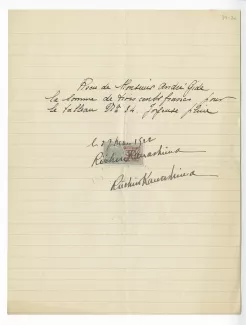 Reçu de Monsieur André Gide
la somme de trois cents francs pour
le tableau No 34. Joyeuse pluie
le 27 mars 1922
Riichiro Kawashima
Riichiro Kawashima